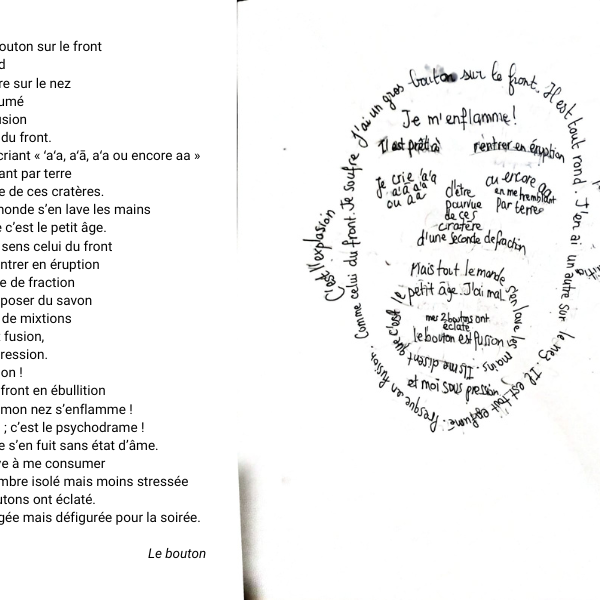 outon sur le front
d
re sur le nez
umé
usion
du front.
criant « ‘a‘a, a‘ā, a‘a ou encore aa »
ant par terre
e de ces cratères.
monde s’en lave les mains
e c’est le petit âge.
sens celui du front
ntrer en éruption
e de fraction
poser du savon
de mixtions
t fusion,
ression.
on !
front en ébullition
mon nez s’enflamme !
; c’est le psychodrame !
e s’en fuit sans état d’âme.
ve à me consumer
mbre isolé mais moins stressée
utons ont éclaté.
gée mais défigurée pour la soirée.
Le bouton
J'ai un gros bouton sur le front. Il est tout rond. J'en ai un autre sur le nez. Il est tout enflumé. Presque en fusion. Comme celui du front. Je souffre
C'est l'explosion
Je m'enflamme !
Il est prêt à
rentrer en éruption
Je crie 'a'a
a'ā a'a
ou aa
ou encore aa
en me tremblant
par terre
d'être
pourvue
de ces
cratère
d'une seconde defraction
Mais tout le monde
s'en lave les mains.
Ils me disent
que c'est le
petit âge. J'ai mal
mes 2 boutons ont
éclaté
le bouton est fusion
et moi sous pression